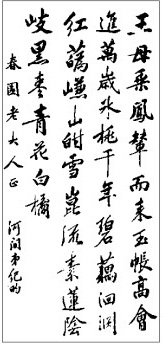 王母乘鳳輦而来玉帳高會
進萬歲冰桃千年碧藕洞渊
紅蘤嵰山甜雪崑流素蓮陰
岐黑棗青花白橘
春園老大人正
河間弟紀昀